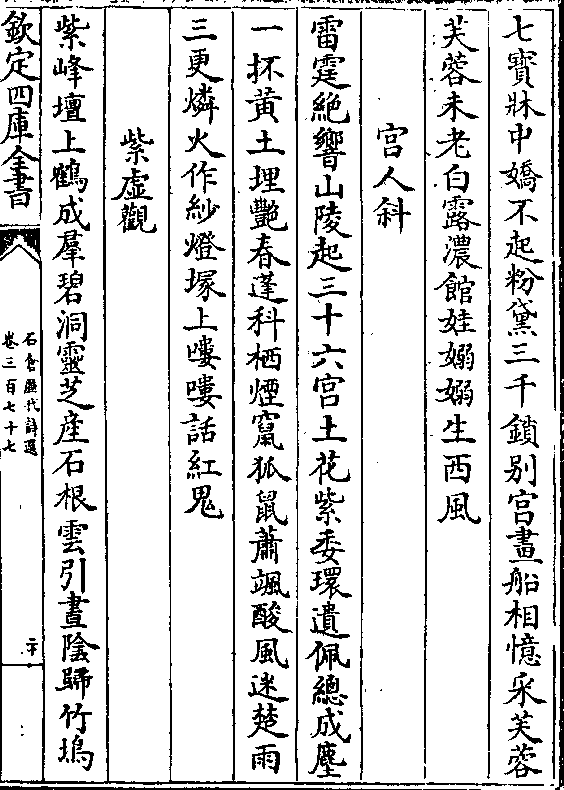 七寳牀中嬌不起粉黛三千鎖别宫畫船相憶采芙蓉
芙蓉未老白露濃館娃嫋嫋生西風
宫人斜
雷霆絶響山陵起三十六宫土花紫委環遺佩總成塵
一抔黄土埋艷春蓬科栖煙竄狐鼠蕭颯酸風迷楚雨
三更燐火作紗燈塚上嘍嘍話紅鬼
紫虚觀
紫峰壇上鶴成羣碧洞靈芝産石根雲引晝陰歸竹塢
欽定四庫全書
石倉歷代詩選
卷三百七十七
二十